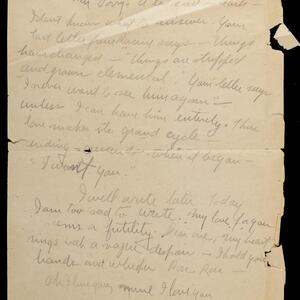 I dont know what to answer. Your
last letter from
says — Things
have changed — Things are stripped
and grown elemental." Your letter says
I never want to see him again" —
unless I can have him entirely. Thus
love makes the grand cycle
ending — when it began —
"I want you."
I will write later today
I am too sad to write. My love for you
a futility. Dear one, my heart
sings with a vague despair — I hold your
hands and whisper
mine I love you